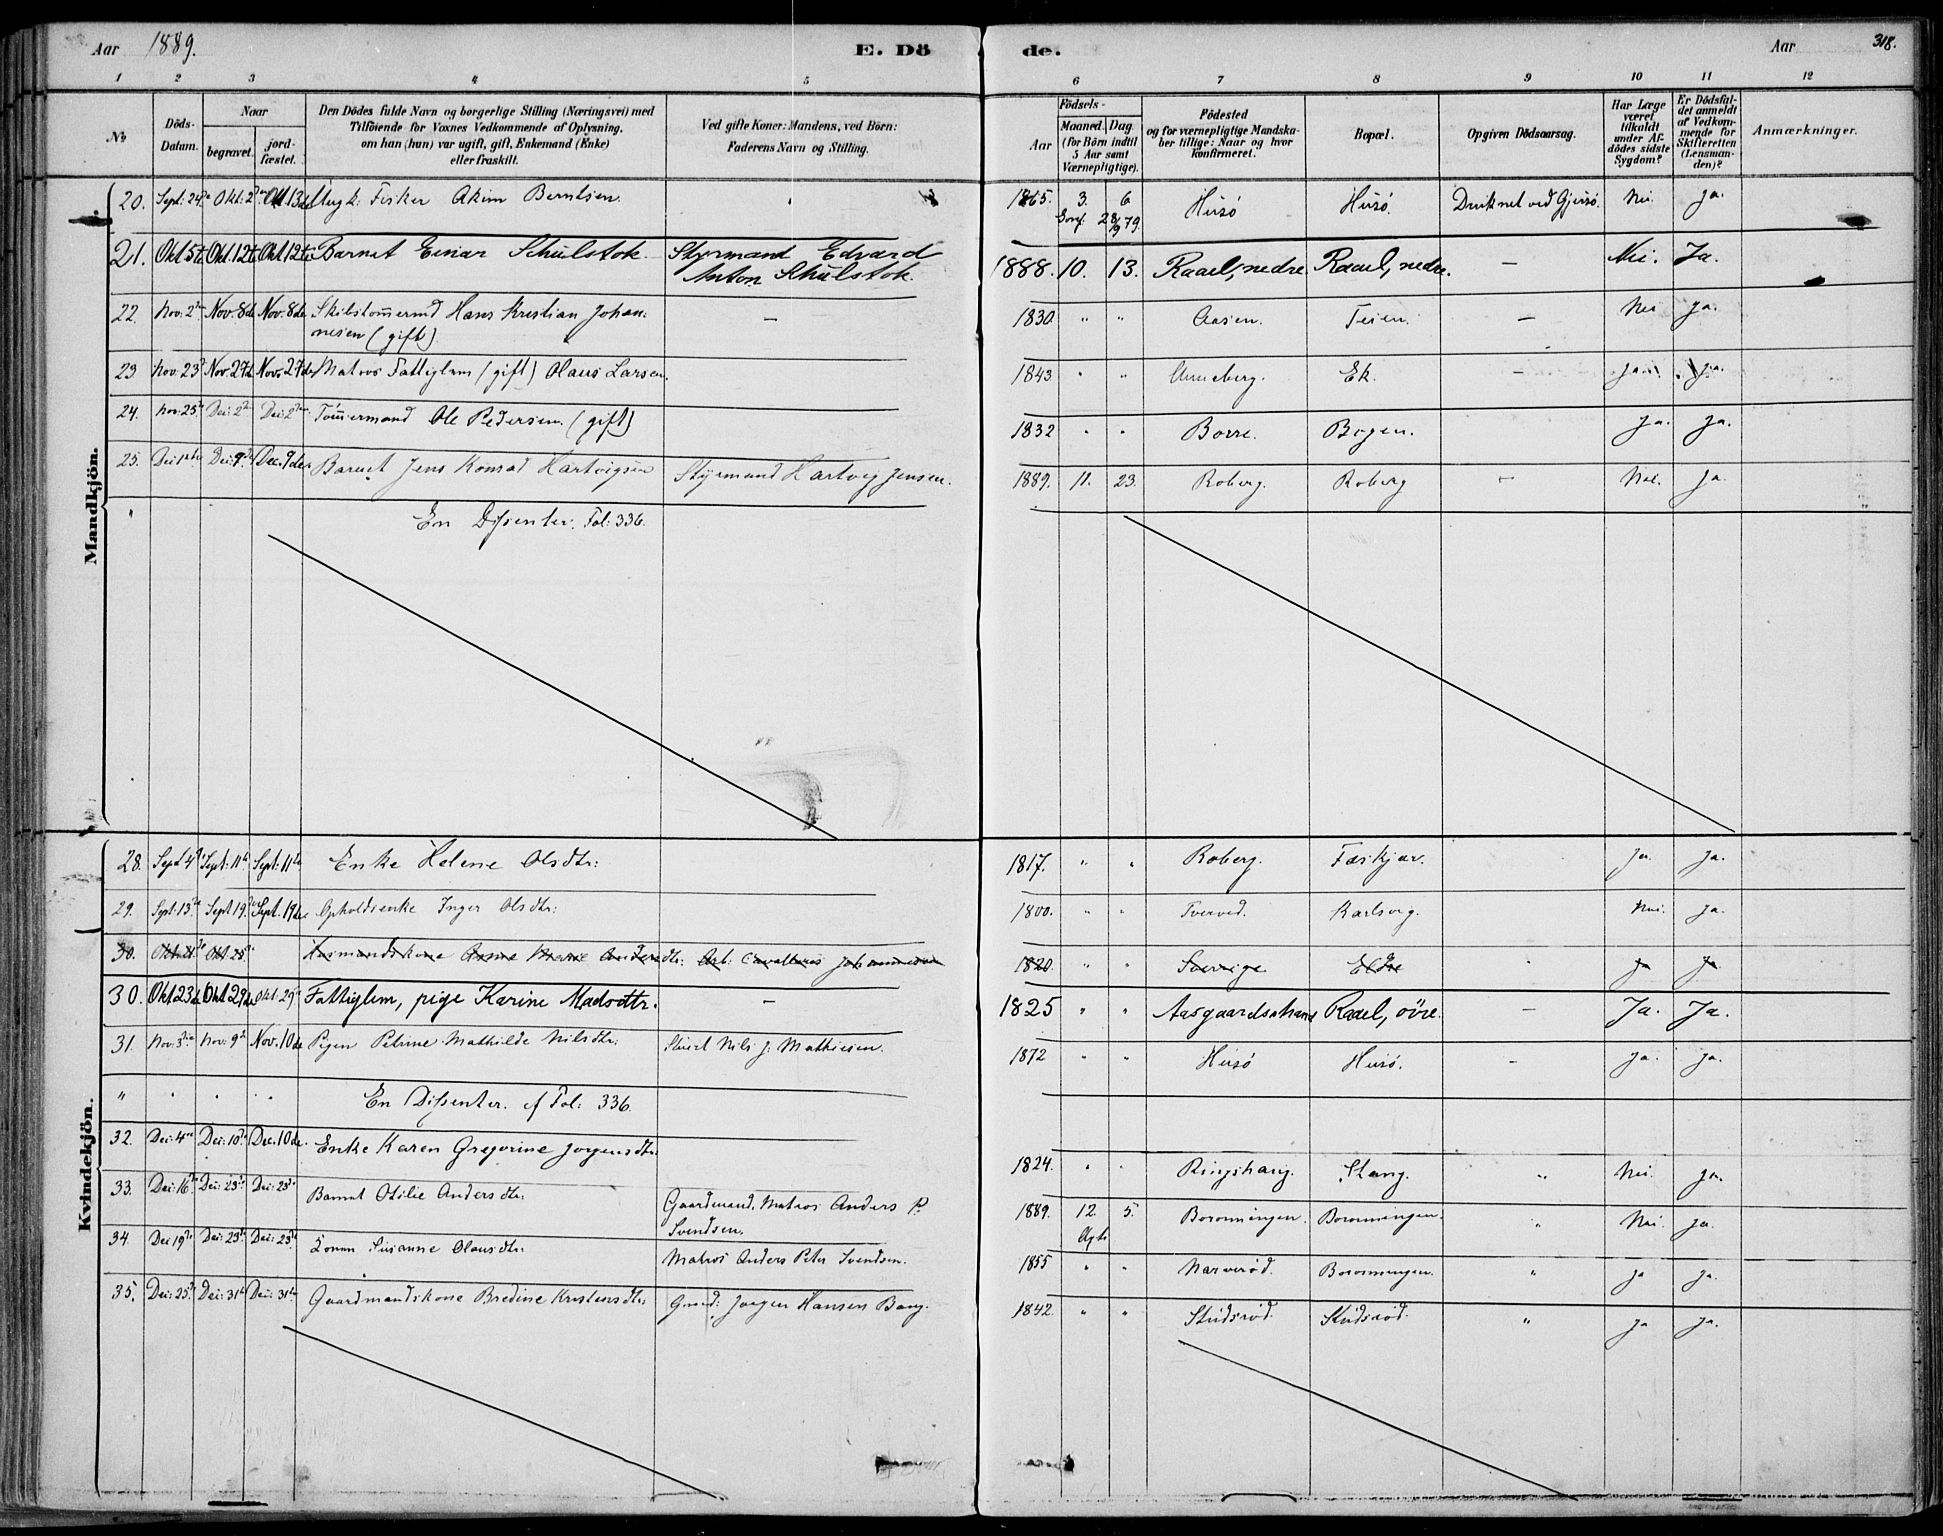 Aar 1889. E. Dö de. Aar 318.
1 2 3 4 5 6 7 8 9 10 11 12
No
Döds-Datum.
Naar begravet. jordfæstet.
Den Dödes fulde Navn og borgerlige Stilling (Næringsvei) med Tilföiende for Voxnes Vedkommende af Oplysning, om han (hun) var ugift, gift, Enkemand (Enke) eller fraskilt.
Ved gifte Koner: Mandens, ved Börn: Faderens Navn og Stilling.
Födsels-
Aar
Maaned. Dag
(for Börn indtil 5 Aar samt Værnepligtige).
Födested og for værnepligtige Mandskaber tillige: Naar og hvor konfirmeret.
Bopæl.
Opgiven Dödsaarsag.
Har Læge været tilkaldt under Afdödes sidste Sygdom?
Er Dödsfaldet anmeldt af Vedkommende for Skifteretten (Lensmanden)?
Anmærkninger.
Mandkjön.
20. Sept: 24 Okt: 2 Okt 13de Ungk: Fisker Akim Berntsen. 1865. 3. 6 Husö Husö. Druknet ved Gjersö. Nei. Ja.
Conf. 28/9 79.
21. Okt 5te Okt. 12te Okt 12te Barnet Einar Schulstok. Styrmand Edvard 1888. 10. 13. Raael, nedre Raael, nedre. — Nei. Ja.
Anton Schulstok.
22. Nov: 2 Nov. 8de Nov. 8de Skibstömermd Hans Kristian Johan: — 1830 " " Aasen. Teien. — Nei Ja.
nesen (gift)
23 Nov: 23 Nov. 27de Nov. 27de Matros Fattiglem (gift) Olaus Larsen. 1843 " " Anneberg. Ek. — Ja. Ja.
24. Nov: 25 Dec: 2 Dec: 2 Tömmermand Ole Pedersen. (gift) 1832 " " Borre. Bogen. Ja. Ja.
25. Dec: 1 Dec: 9 Dec. 9de Barnet Jens Konrad Hartvigsen Styrmand Hartvig Jensen. 1889. 11. 23. Roberg. Roberg — Nei. Ja.
" En Dissenter. Fol: 336.
Kvindekjön.
28. Sept 4 Sept: 11 Sept: 11 Enke Helene Olsdtr: 1817. " " Roberg. Faskjær. Ja. Ja.
29. Sept: 13 Sept 19. Sept. 19de Opholdsenke Inger Olsdtr: 1800. " " Tverved. Karlsvg. Nei. Ja.
30. Okt: 21 Okt 25 Husmandskone Anne Marie Andersdtr: Arb: Johannesen 1820 " Sverige Eldre Ja Ja
30. Okt 23de Okt 29de Okt. 29 Fattiglem, pige Karine Madsdtr. — 1825 " " Aasgaardsstrand Raael, övre. — Ja. Ja.
31. Nov: 3 Nov: 9 Nov. 10de Pigen Petrine Mathilde Nilsdtr: Nils J: Mathiesen. 1872 " " Husö Husö. — Ja. Ja.
" En Dissenter. cf Fol: 336.
32. Dec: 4 Dec: 10 Dec. 10de. Enke Karen Gregorine Jörgensdtr: 1824. " " Ringshaug. Stang. " Nei. Ja.
33. Dec: 16 Dec: 23 Dec: 23 Barnet Otilie Andersdtr: Gaardmand, Matros Anders P. 1889. 12. 5. Boronningen. Boronningen. " Nei. Ja.
Svendsen.
34. Dec 19 Dec: 23 Dec: 23 Konen Susanne Olausdtr: Matros Anders Peter Svendsen. 1855 " " Narveröd. Boronningen. " Ja Ja.
35. Dec: 25 Dec: 31 Dec: 31 Gaardmandskone Bredine Kristensdtr: Gmd: Jörgen Hansen Bang. 1842. " " Stidsröd. Stidsröd. " Ja Ja.